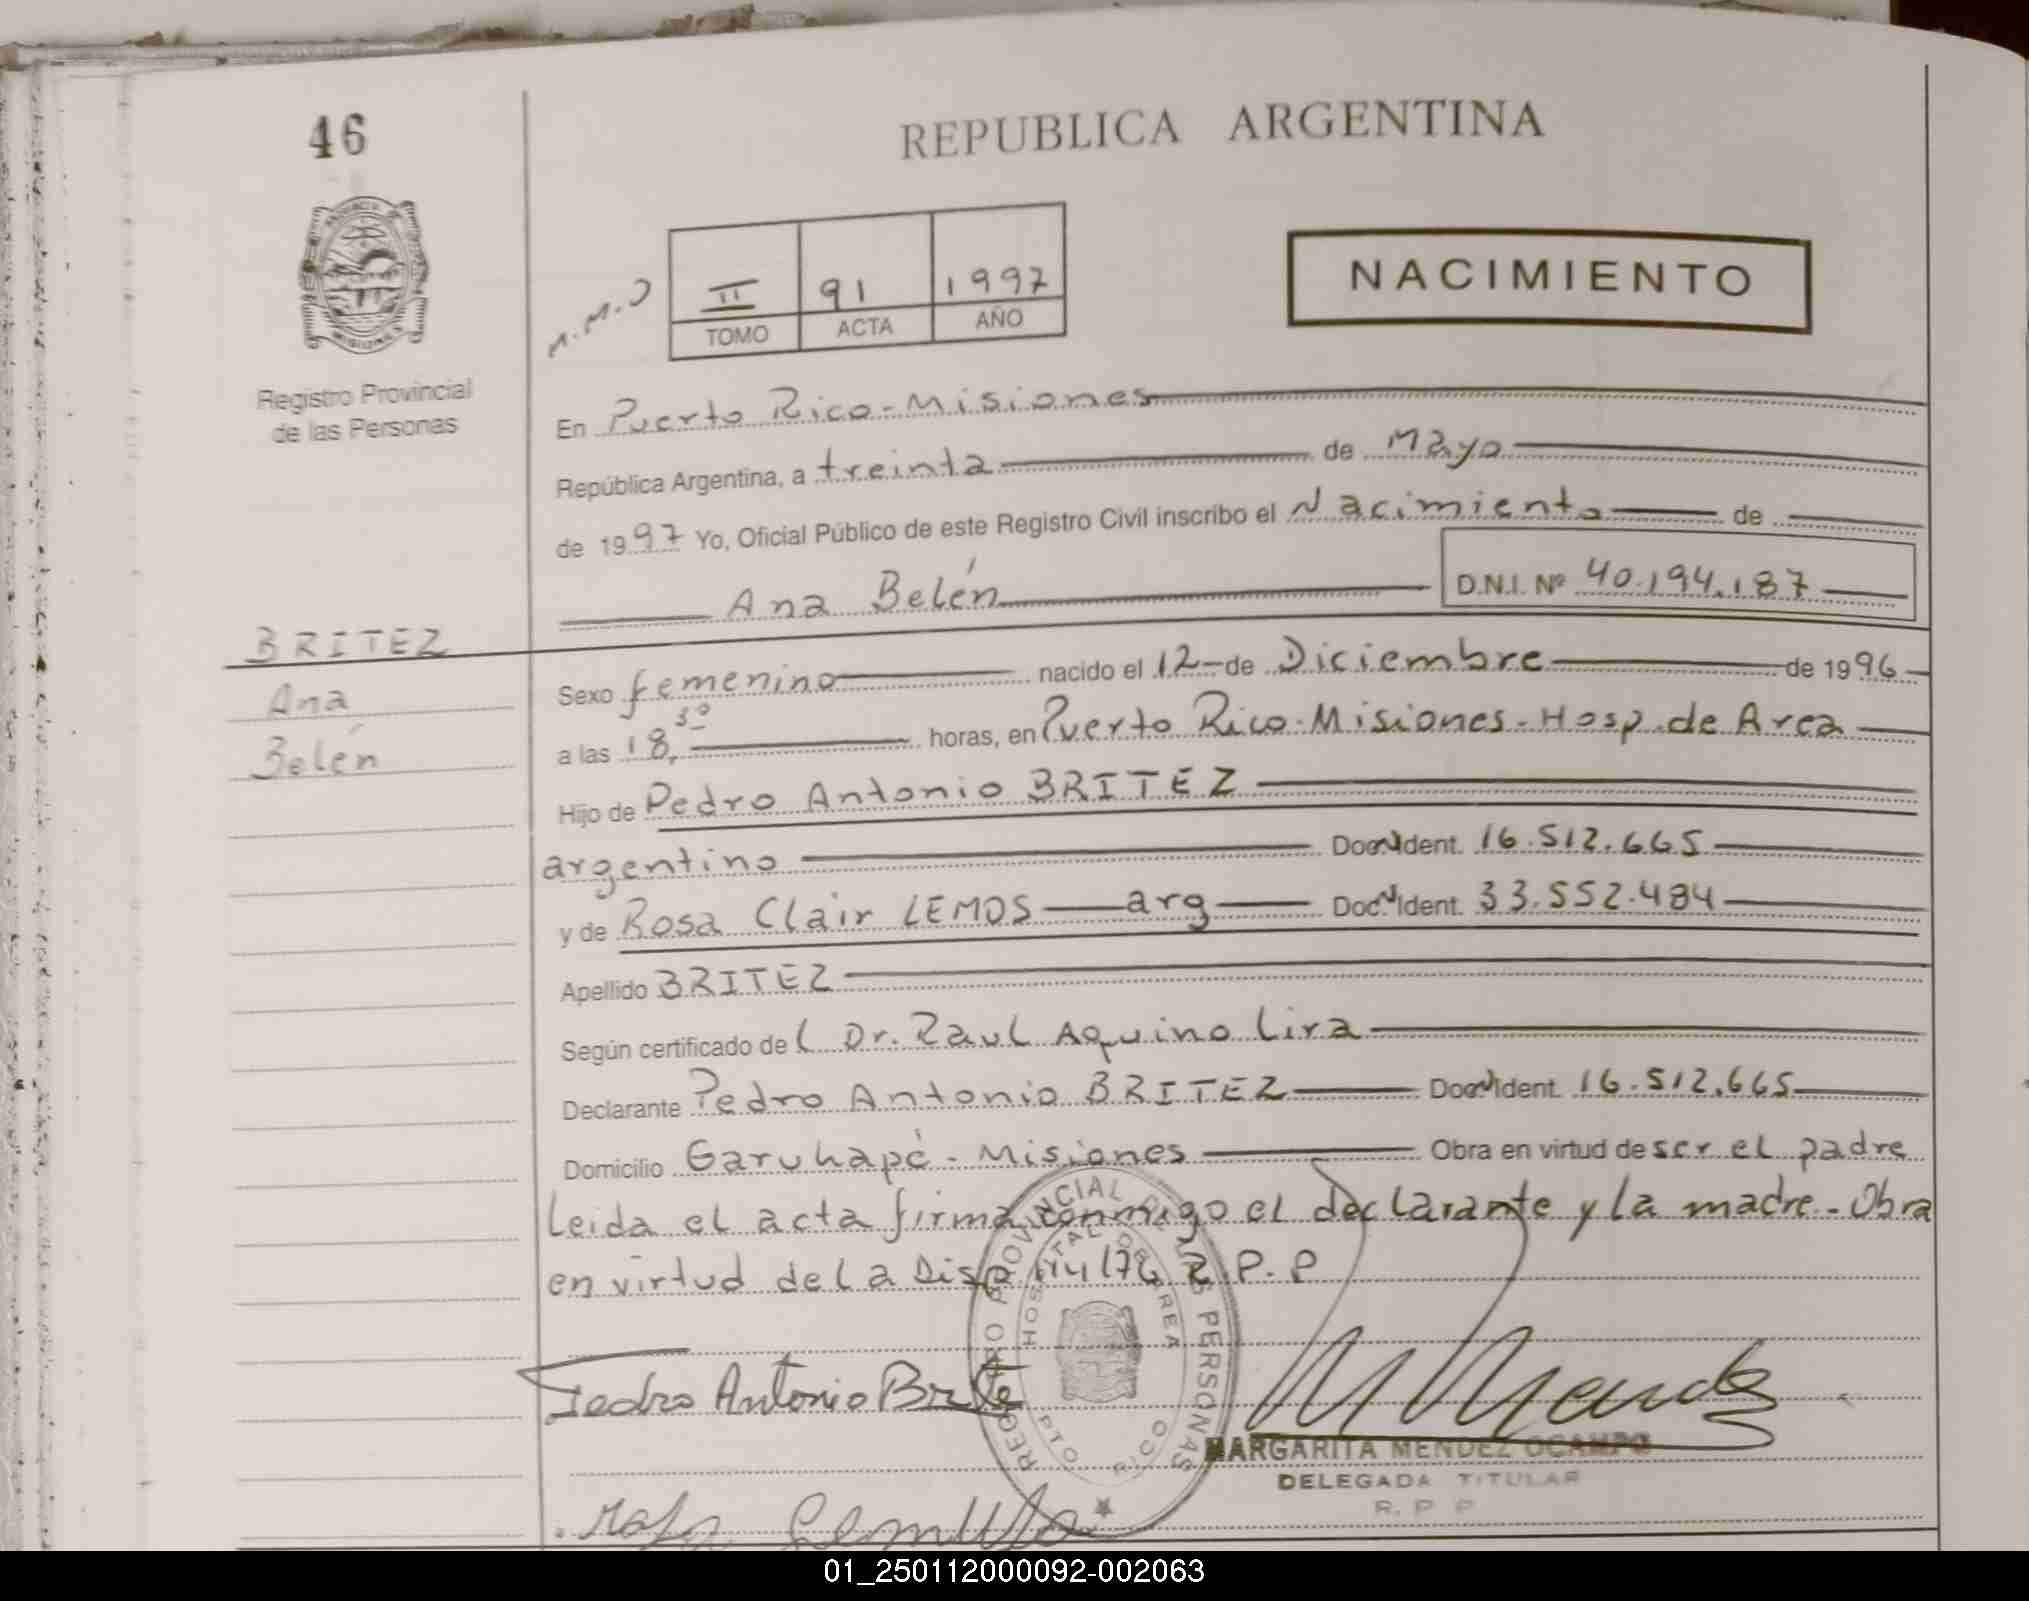 46
REPUBLICA ARGENTINA
PROVINCIA DE MISIONES
II 91 1997
TOMO ACTA AÑO
NACIMIENTO
Registro Provincial
de las Personas
En Puerto Rico - Misiones
República Argentina, a treinta de Mayo
de 1997 Yo, Oficial Público de este Registro Civil inscribo el Nacimiento de
Ana Belén D.N.I. Nº 40.194.187
BRITEZ
Ana
Belén
Sexo femenino nacido el 12 de Diciembre de 1996
a las 18,30 horas, en Puerto Rico - Misiones - Hosp. de Area
Hijo de Pedro Antonio BRITEZ
argentino Doc. Ident. 16.512.665
y de Rosa Clair LEMOS arg Doc. Ident. 33.552.484
Apellido BRITEZ
Según certificado del Dr. Raul Aquino Lira
Declarante Pedro Antonio BRITEZ Doc. Ident. 16.512.665
Domicilio Garuhapé - Misiones Obra en virtud de ser el padre
Leida el acta firma conmigo el declarante y la madre - Obra
en virtud de la Disp 114/76 R.P.P
REGISTRO PROVINCIAL DE LAS PERSONAS
HOSPITAL DE AREA
PTO RICO
Pedro Antonio Britez
MARGARITA MENDEZ OCAMPO
DELEGADA TITULAR
R. P. P
01_250112000092-002063